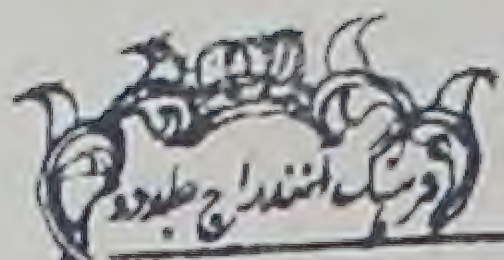 فرهنگ انندراج جلد دو